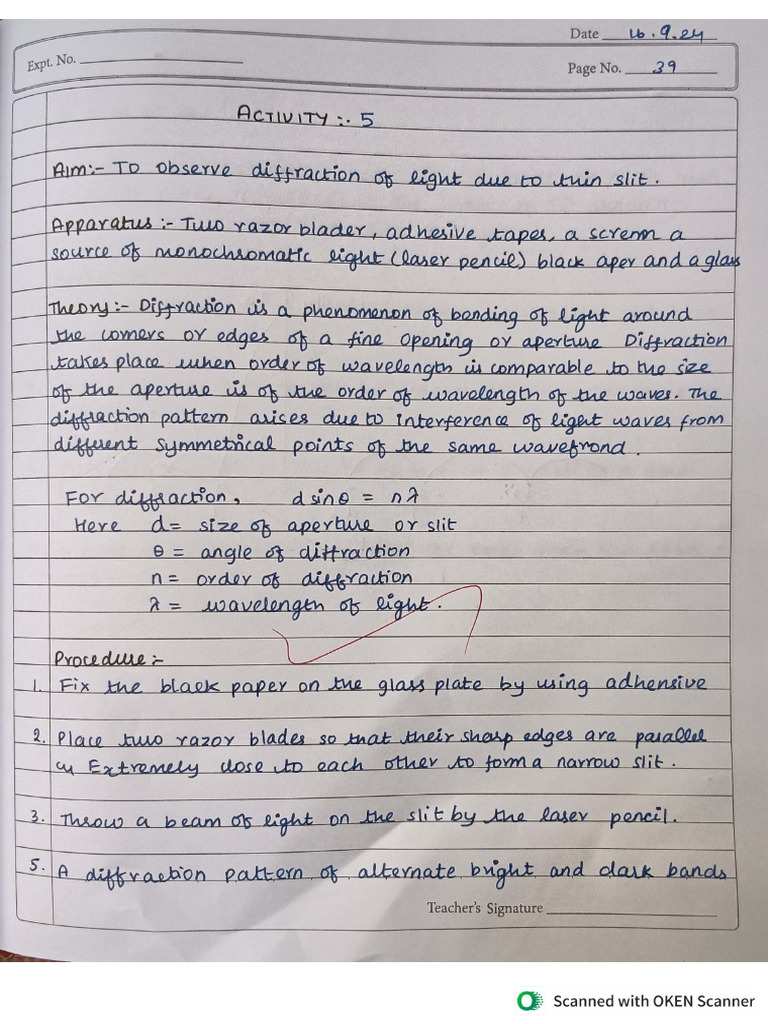 Date 16.9.24
Expt. No.
Page No. 39
ACTIVITY :- 5
Aim:- To observe diffraction of light due to thin slit.
Apparatus :- Two razor blader, adhesive tapes, a screnn a
source of monochromatic light (laser pencil) black aper and a glass
Theory :- Diffraction is a phenomenon of bending of light around
the corners or edges of a fine opening or aperture Diffraction
takes place when order of wavelength is comparable to the size
of the aperture is of the order of wavelength of the waves. The
diffraction pattern arises due to interference of light waves from
different symmetrical points of the same wavefrond.
For diffraction, d sinθ = nλ
Here d= size of aperture or slit
θ = angle of diffraction
n = order of diffraction
λ = wavelength of light.
Procedure :-
1. Fix the black paper on the glass plate by using adhensive
2. Place two razor blades so that their sharp edges are parallel
Extremely close to each other to form a narrow slit.
3. Throw a beam of light on the slit by the laser pencil.
5. A diffraction pattern of alternate bright and dark bands
Teacher's Signature
Scanned with OKEN Scanner